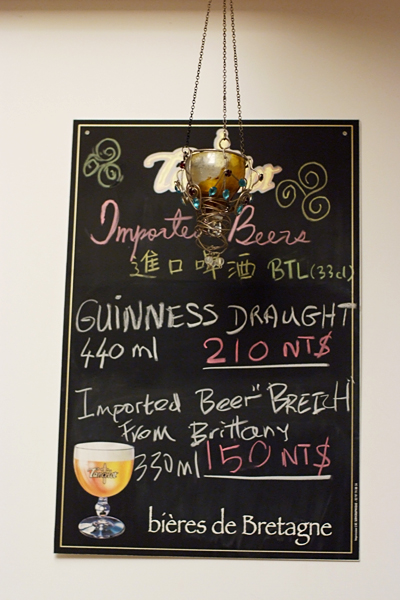 Imported Beers
進口啤酒 BTL(33cl)
GUINNESS DRAUGHT
440ml 210 NT$
Imported Beer "BREIZH"
From Brittany
330ml 150 NT$
bières de Bretagne